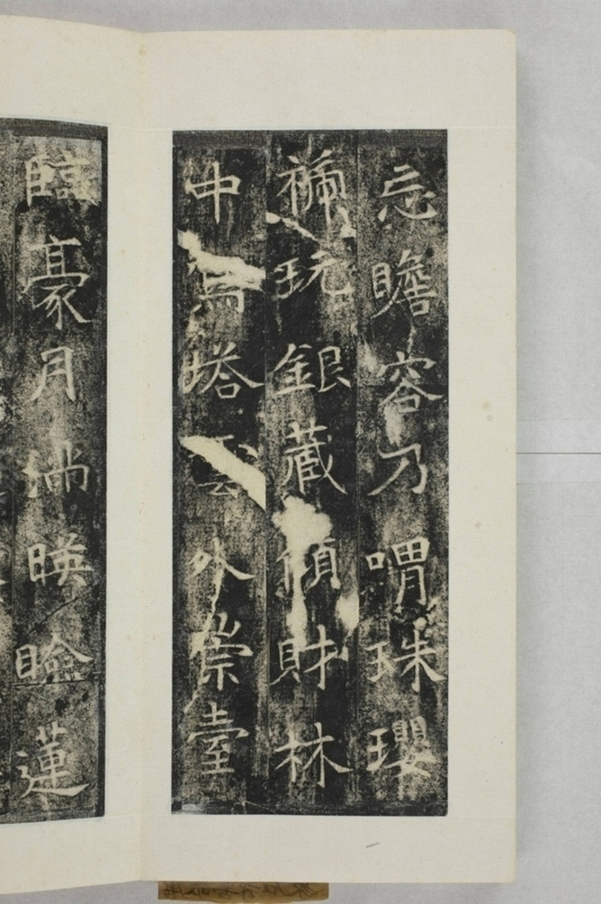 忘瞻容乃喟珠瓔
玩銀藏傾財林
中塔雲外崇臺
臨豪月滿暎瞼蓮